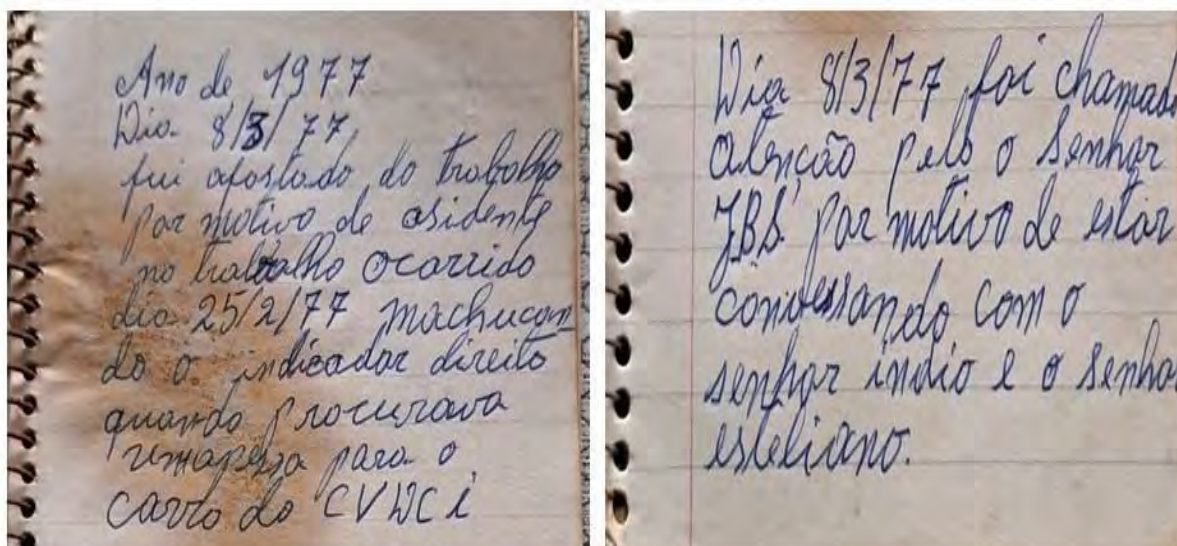 Ano de 1977
Dia 8/3/77,
fui afostado do trabalho
por motivo de asidente
no trabalho ocorrido
dia 25/2/77 machucan
do o indicador direito
quando procurava
umapessa para o
carro do
Dia 8/3/77 foi chamado
atenção pelo o Senhor
JBS. por motivo de estar
conversando com o
senhor indio e o Senhor
esteliano.